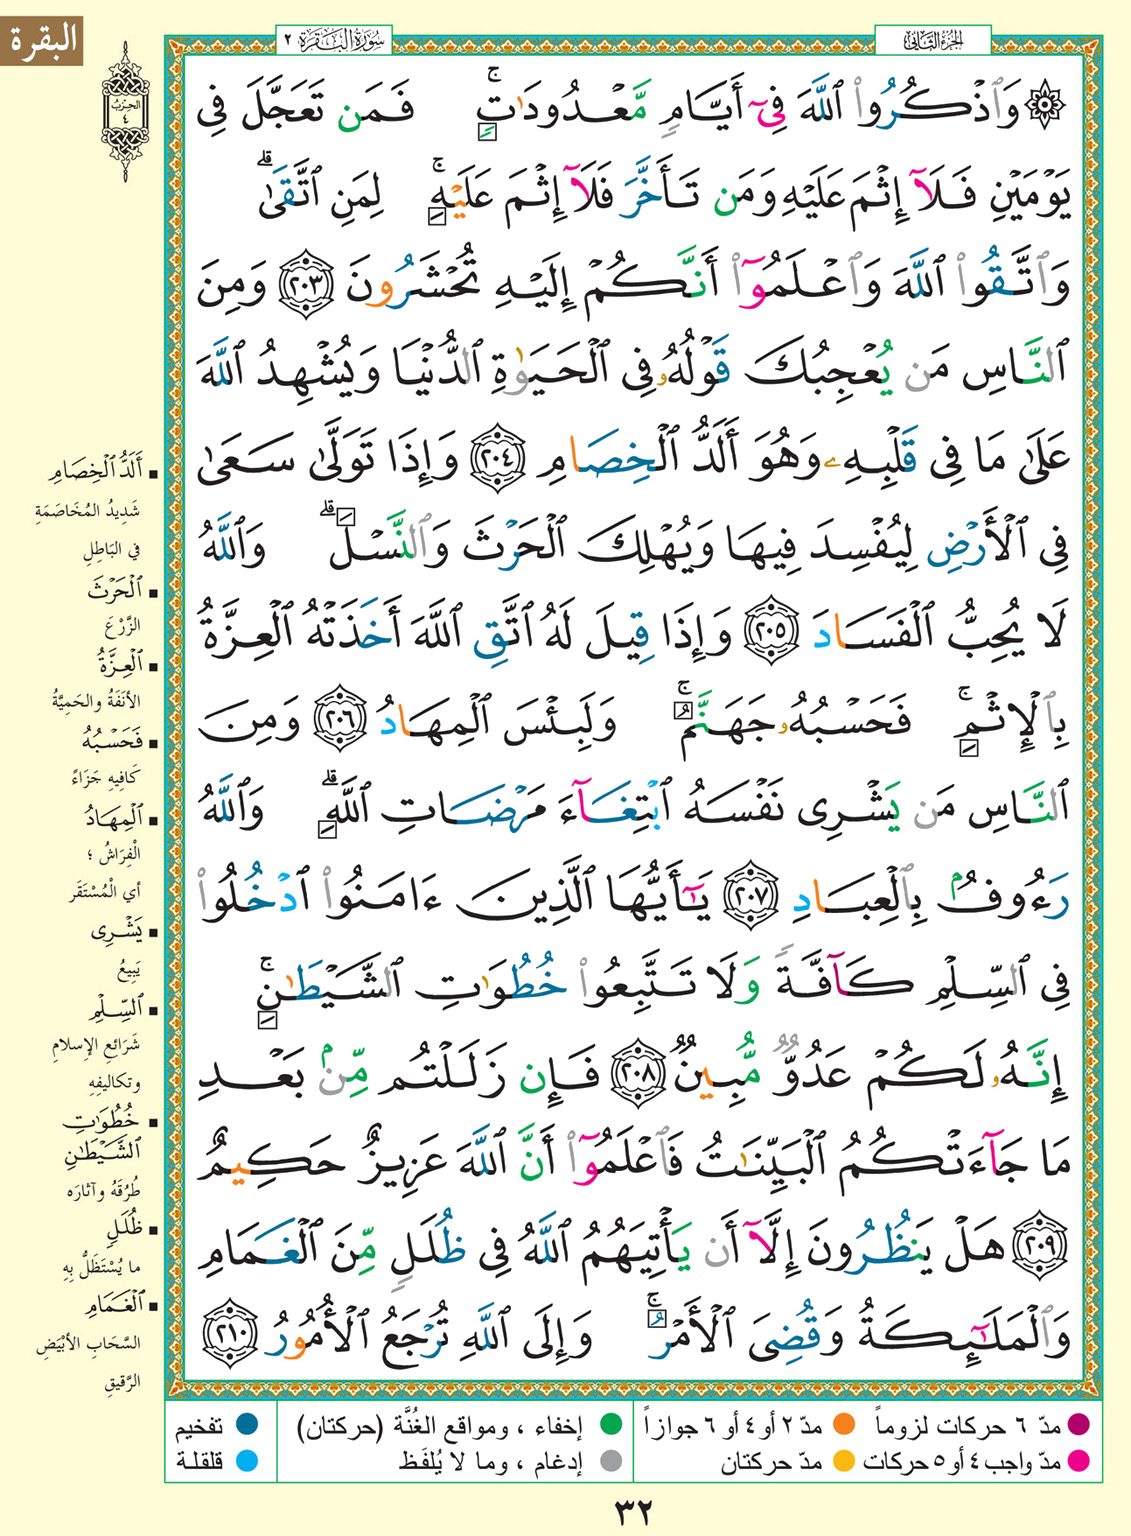 البقرة
سُورَةُ البَقَرَة ٢
الجزء الثاني
الحِزْب
٤
۞ وَٱذْكُرُوا۟ ٱللَّهَ فِىٓ أَيَّامٍۢ مَّعْدُودَٰتٍۢ ۚ فَمَن تَعَجَّلَ فِى
يَوْمَيْنِ فَلَآ إِثْمَ عَلَيْهِ وَمَن تَأَخَّرَ فَلَآ إِثْمَ عَلَيْهِ ۚ لِمَنِ ٱتَّقَىٰ ۗ
وَٱتَّقُوا۟ ٱللَّهَ وَٱعْلَمُوٓا۟ أَنَّكُمْ إِلَيْهِ تُحْشَرُونَ ٢٠٣ وَمِنَ
ٱلنَّاسِ مَن يُعْجِبُكَ قَوْلُهُۥ فِى ٱلْحَيَوٰةِ ٱلدُّنْيَا وَيُشْهِدُ ٱللَّهَ
عَلَىٰ مَا فِى قَلْبِهِۦ وَهُوَ أَلَدُّ ٱلْخِصَامِ ٢٠٤ وَإِذَا تَوَلَّىٰ سَعَىٰ
فِى ٱلْأَرْضِ لِيُفْسِدَ فِيهَا وَيُهْلِكَ ٱلْحَرْثَ وَٱلنَّسْلَ ۗ وَٱللَّهُ
لَا يُحِبُّ ٱلْفَسَادَ ٢٠٥ وَإِذَا قِيلَ لَهُ ٱتَّقِ ٱللَّهَ أَخَذَتْهُ ٱلْعِزَّةُ
بِٱلْإِثْمِ ۚ فَحَسْبُهُۥ جَهَنَّمُ ۚ وَلَبِئْسَ ٱلْمِهَادُ ٢٠٦ وَمِنَ
ٱلنَّاسِ مَن يَشْرِى نَفْسَهُ ٱبْتِغَآءَ مَرْضَاتِ ٱللَّهِ ۗ وَٱللَّهُ
رَءُوفٌۢ بِٱلْعِبَادِ ٢٠٧ يَٰٓأَيُّهَا ٱلَّذِينَ ءَامَنُوا۟ ٱدْخُلُوا۟
فِى ٱلسِّلْمِ كَآفَّةً وَلَا تَتَّبِعُوا۟ خُطُوَٰتِ ٱلشَّيْطَٰنِ ۚ
إِنَّهُۥ لَكُمْ عَدُوٌّ مُّبِينٌ ٢٠٨ فَإِن زَلَلْتُم مِّنۢ بَعْدِ
مَا جَآءَتْكُمُ ٱلْبَيِّنَٰتُ فَٱعْلَمُوٓا۟ أَنَّ ٱللَّهَ عَزِيزٌ حَكِيمٌ
٢٠٩ هَلْ يَنظُرُونَ إِلَّآ أَن يَأْتِيَهُمُ ٱللَّهُ فِى ظُلَلٍۢ مِّنَ ٱلْغَمَامِ
وَٱلْمَلَٰٓئِكَةُ وَقُضِىَ ٱلْأَمْرُ ۚ وَإِلَى ٱللَّهِ تُرْجَعُ ٱلْأُمُورُ ٢١٠
أَلَدُّ ٱلْخِصَامِ
شَدِيدُ المُخَاصَمَةِ
فِي البَاطِلِ
ٱلْحَرْثَ
الزَّرْعَ
ٱلْعِزَّةُ
الأَنَفَةُ والحَمِيَّةُ
فَحَسْبُهُ
كَافِيهِ جَزَاءً
ٱلْمِهَادُ
الْفِرَاشُ ؛
أي الْمُسْتَقَر
يَشْرِى
يَبِيعُ
ٱلسِّلْمِ
شَرَائِعِ الإسلامِ
وتكاليفِهِ
خُطُوَٰتِ
ٱلشَّيْطَٰنِ
طُرُقَهُ وآثارَه
ظُلَلٍ
ما يُسْتَظَلُّ بِهِ
ٱلْغَمَامِ
السَّحَابِ الأَبْيَضِ
الرَّقيقِ
مدّ ٦ حركات لزوماً مدّ ٢ أو ٤ أو ٦ جوازاً إخفاء ، ومواقع الغُنَّة (حركتان) تفخيم
مدّ واجب ٤ أو ٥ حركات مدّ حركتان إدغام ، وما لا يُلفَظ قلقلة
٣٢